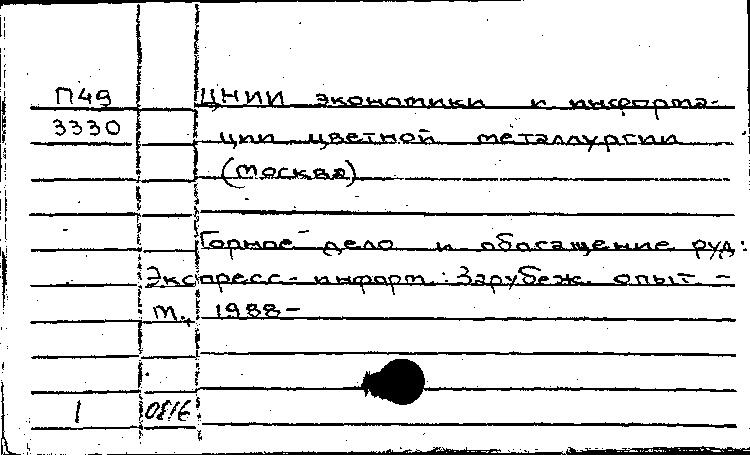 П49 ЦНИИ экономики и информа-
3330 ции цветной металлургии
(Москва)
Горное дело и обогащение руд:
Экспресс-информ.: Зарубеж. опыт. -
М., 1988-
1 0816